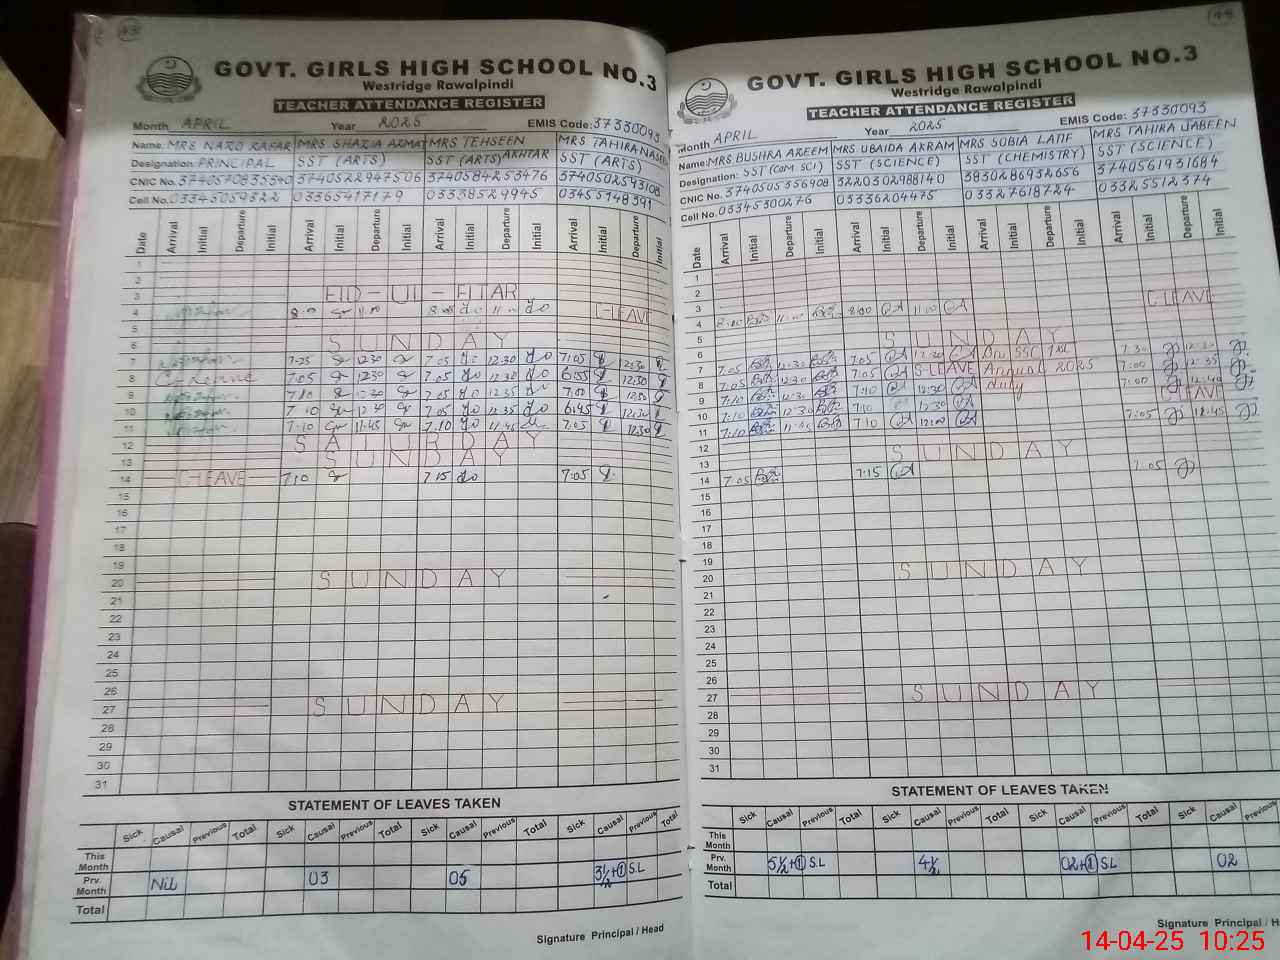 43
GOVT. GIRLS HIGH SCHOOL NO.3
Westridge Rawalpindi
TEACHER ATTENDANCE REGISTER
Month APRIL Year 2025 EMIS Code: 37330093
Name: MRS NAZO ZAFAR MRS SHAZIA AZMAT MRS TEHSEEN AKHTAR MRS TAHIRA NASEEM
Designation: PRINCIPAL SST (ARTS) SST (ARTS) SST (ARTS)
CNIC No. 3740570835540 3740522947506 3740584253476 3740502593108
Cell No. 03345059322 03365417179 03338529945 03455148391
Date Arrival Initial Departure Initial Arrival Initial Departure Initial Arrival Initial Departure Initial Arrival Initial Departure Initial
1
2
3 EID-UL-FITAR
4 8:00 11:00 8:00 11:00 C-LEAVE
5
6 SUNDAY
7 7:25 12:30 7:05 12:30 7:05 12:30
8 7:05 12:30 7:05 12:30 6:55 12:30
9 7:10 12:30 7:05 12:35 7:00 12:50
10 7:10 12:40 7:05 12:35 6:45 12:30
11 7:10 11:45 7:10 11:45 7:05 12:30
12 SATURDAY
13 SUNDAY
14 C-LEAVE 7:10 7:15 7:05
15
16
17
18
19
20 SUNDAY
21
22
23
24
25
26
27 SUNDAY
28
29
30
31
STATEMENT OF LEAVES TAKEN
Sick Causal Previous Total Sick Causal Previous Total Sick Causal Previous Total Sick Causal Previous Total
This Month
Prv. Month Nil 03 05 3½+① S.L
Total
Signature Principal / Head
44
GOVT. GIRLS HIGH SCHOOL NO.3
Westridge Rawalpindi
TEACHER ATTENDANCE REGISTER
Month APRIL Year 2025 EMIS Code: 37330093
Name: MRS BUSHRA AZEEM MRS UBAIDA AKRAM MRS SOBIA LATIF MRS TAHIRA JABEEN
Designation: SST (COM SCI) SST (SCIENCE) SST (CHEMISTRY) SST (SCIENCE)
CNIC No. 3740505556908 3220302988140 3830286932656 3740561931684
Cell No. 03345300276 03336204475 03327618724 03325512374
Date Arrival Initial Departure Initial Arrival Initial Departure Initial Arrival Initial Departure Initial Arrival Initial Departure Initial
1
2
3 C-LEAVE
4 8:00 11:00 8:00 11:00
5
6 SUNDAY
7 7:05 12:30 7:05 12:30 7:30 12:30
8 7:05 12:30 7:05 S-LEAVE Annual 2025 7:00 12:35
9 7:10 12:30 7:10 12:30 duty 7:00 12:40
10 7:10 12:30 7:10 12:30 C-LEAVE
11 7:10 11:45 7:10 12:00 7:05 12:45
12
13 SUNDAY
14 7:05 7:15 7:05
15
16
17
18
19
20 SUNDAY
21
22
23
24
25
26
27 SUNDAY
28
29
30
31
STATEMENT OF LEAVES TAKEN
Sick Causal Previous Total Sick Causal Previous Total Sick Causal Previous Total Sick Causal Previous Total
This Month
Prv. Month 5½+① S.L 4½ 02+① S.L 02
Total
Signature Principal / H
14-04-25 10:25